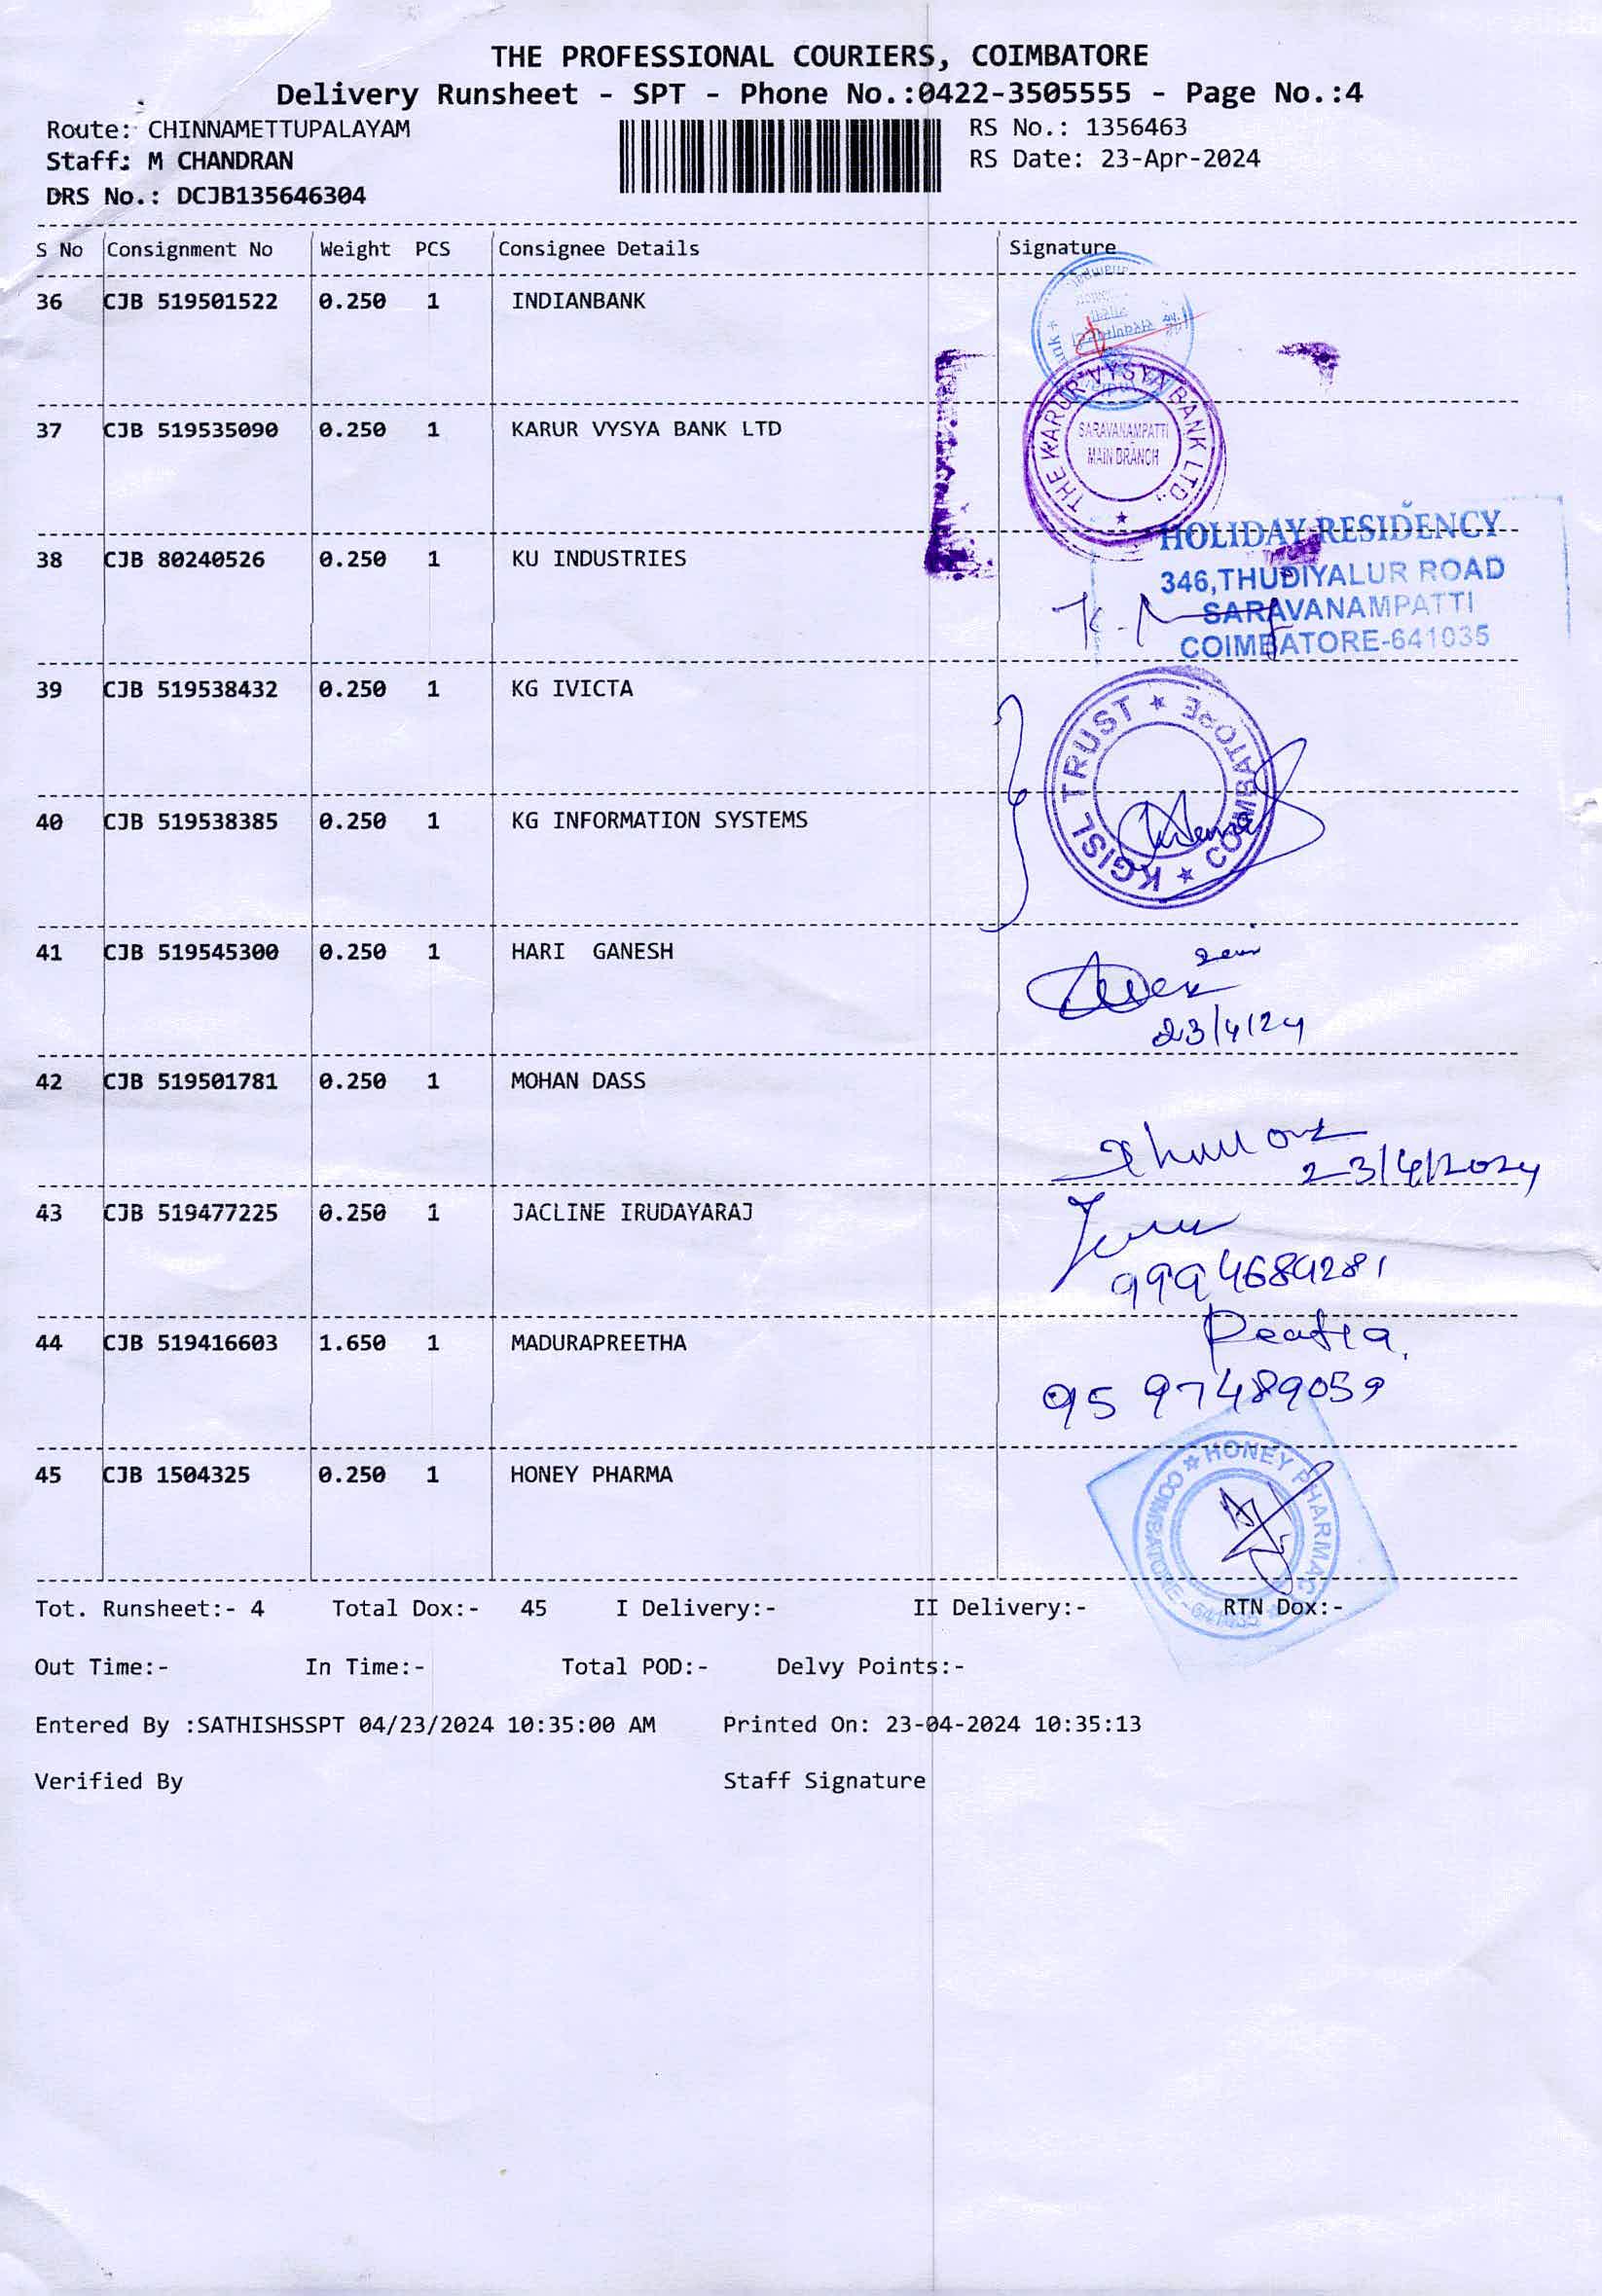 THE PROFESSIONAL COURIERS, COIMBATORE
Delivery Runsheet - SPT - Phone No.:0422-3505555 - Page No.:4
Route: CHINNAMETTUPALAYAM
RS No.: 1356463
Staff: M CHANDRAN
RS Date: 23-Apr-2024
DRS No.: DCJB135646304
S No Consignment No Weight PCS Consignee Details Signature
36 CJB 519501522 0.250 1 INDIANBANK
37 CJB 519535090 0.250 1 KARUR VYSYA BANK LTD
THE KARUR VYSYA BANK LTD.,
SARAVANAMPATTI
MAIN BRANCH
38 CJB 80240526 0.250 1 KU INDUSTRIES
HOLIDAY RESIDENCY
346,THUDIYALUR ROAD
SARAVANAMPATTI
COIMBATORE-641035
39 CJB 519538432 0.250 1 KG IVICTA
KGISL TRUST ★ COIMBATORE ★
40 CJB 519538385 0.250 1 KG INFORMATION SYSTEMS
41 CJB 519545300 0.250 1 HARI GANESH
23/4/24
42 CJB 519501781 0.250 1 MOHAN DASS
23/4/2024
43 CJB 519477225 0.250 1 JACLINE IRUDAYARAJ
9994684281
44 CJB 519416603 1.650 1 MADURAPREETHA
95 97489059
45 CJB 1504325 0.250 1 HONEY PHARMA
★ HONEY PHARMACY ★ COIMBATORE - 641035
Tot. Runsheet:- 4 Total Dox:- 45 I Delivery:- II Delivery:- RTN Dox:-
Out Time:- In Time:- Total POD:- Delvy Points:-
Entered By :SATHISHSSPT 04/23/2024 10:35:00 AM Printed On: 23-04-2024 10:35:13
Verified By Staff Signature